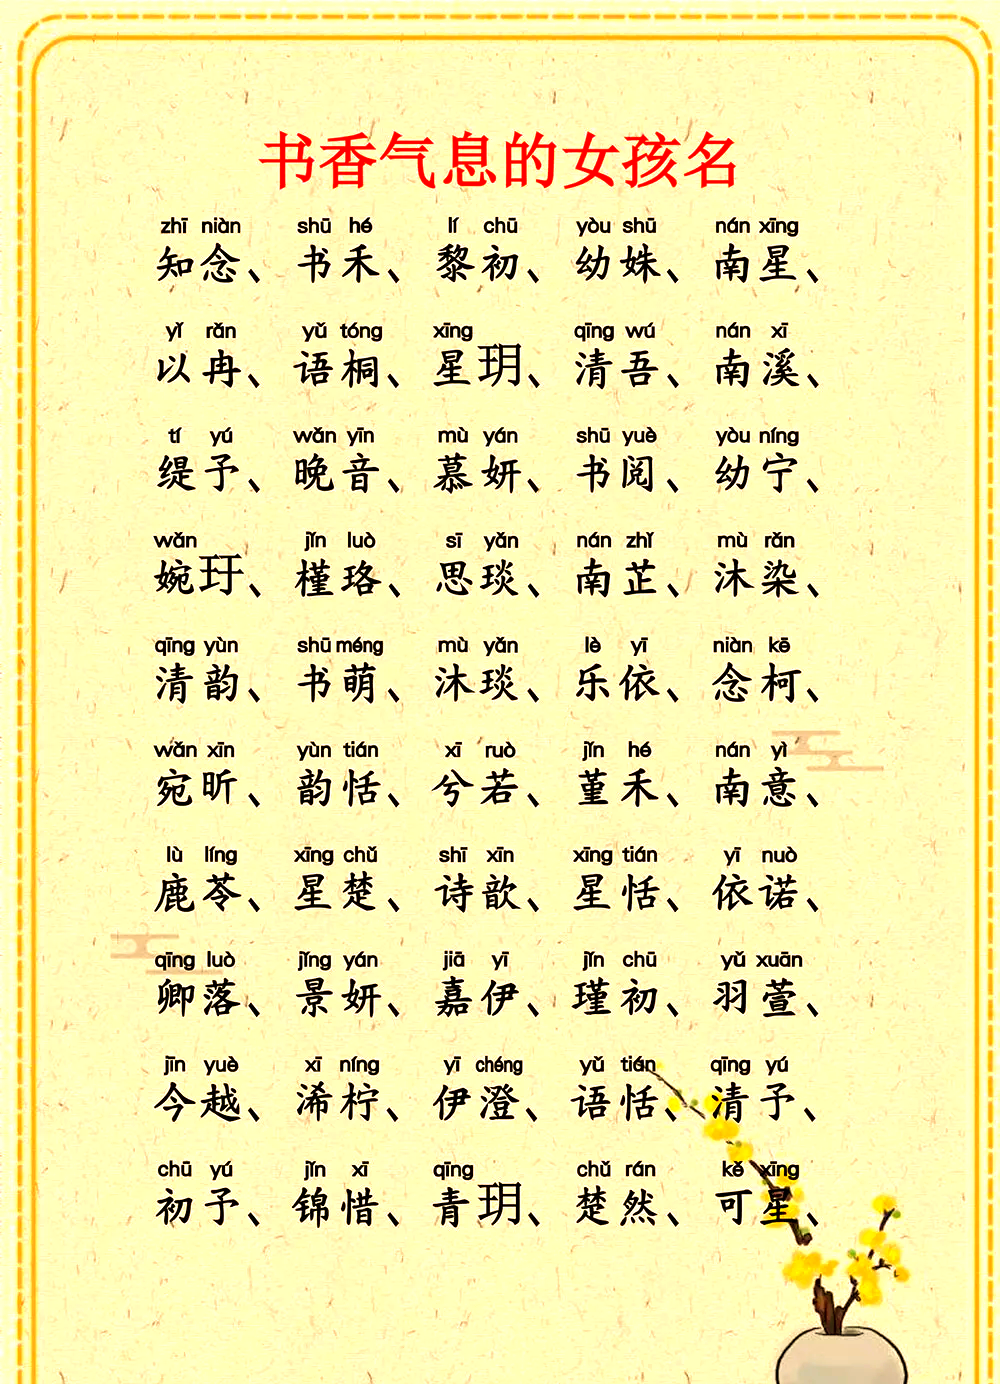 书香气息的女孩名
zhī niàn shū hé lí chū yòu shū nán xīng
知念、书禾、黎初、幼姝、南星、
yǐ rǎn yǔ tóng xīng qīng wú nán xī
以冉、语桐、星玥、清吾、南溪、
tí yú wǎn yīn mù yán shū yuè yòu níng
缇予、晚音、慕妍、书阅、幼宁、
wǎn jǐn luò sī yǎn nán zhǐ mù rǎn
婉玗、槿珞、思琰、南芷、沐染、
qīng yùn shū méng mù yǎn lè yī niàn kē
清韵、书萌、沐琰、乐依、念柯、
wǎn xīn yùn tián xī ruò jǐn hé nán yì
宛昕、韵恬、兮若、堇禾、南意、
lù líng xīng chǔ shī xīn xīng tián yī nuò
鹿苓、星楚、诗歆、星恬、依诺、
qīng luò jǐng yán jiā yī jǐn chū yǔ xuān
卿落、景妍、嘉伊、瑾初、羽萱、
jīn yuè xī níng yī chéng yǔ tián qīng yú
今越、浠柠、伊澄、语恬、清予、
chū yú jǐn xī qīng chǔ rán kě xīng
初予、锦惜、青玥、楚然、可星、